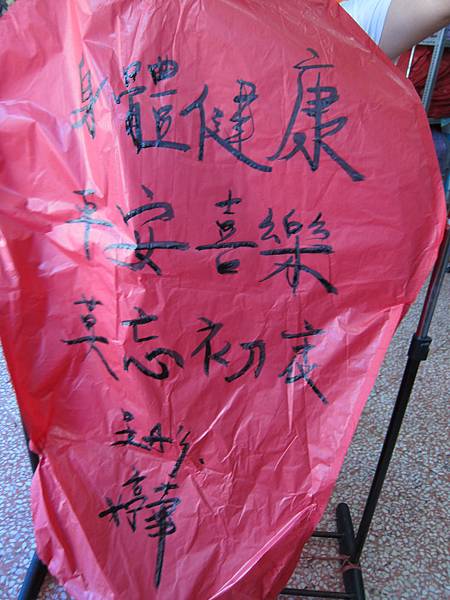 身體健康
平安喜樂
莫忘初衷